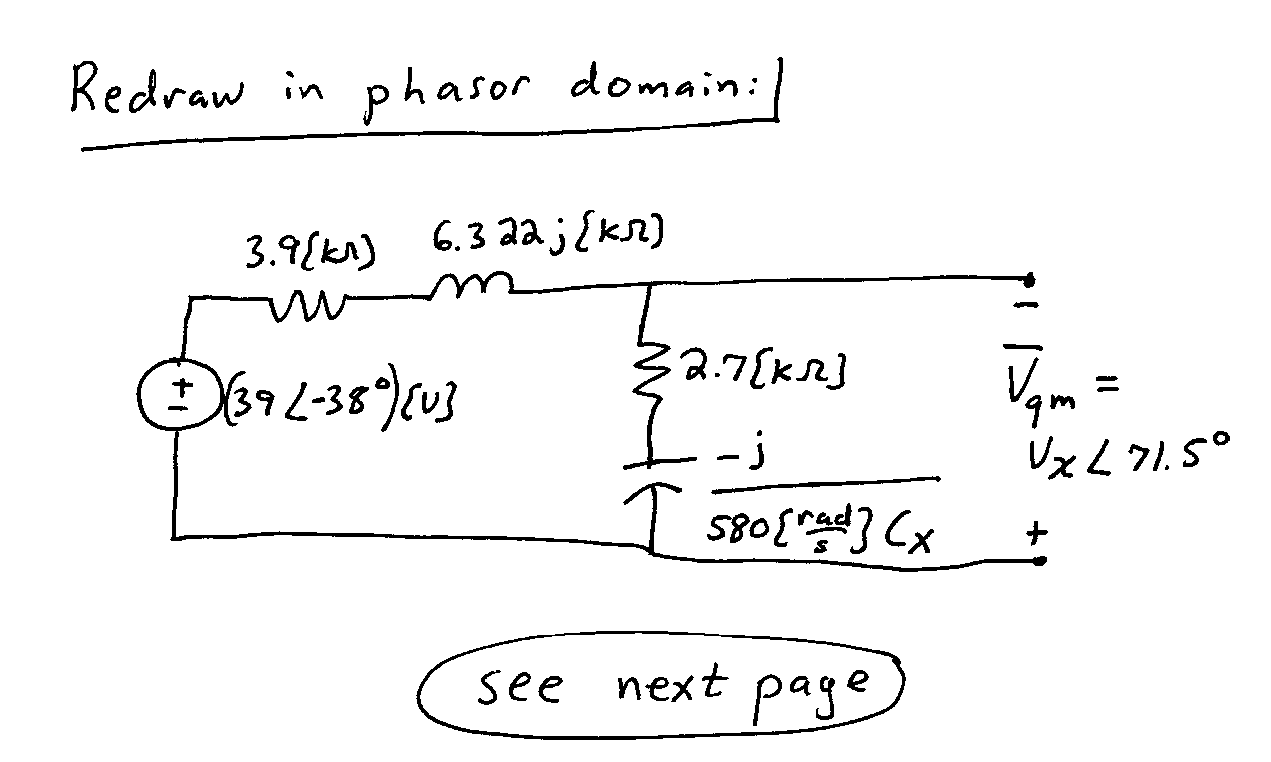 Redraw in phasor domain:
3.9[kΩ] 6.322j[kΩ]
+
-
(39∠-38°)[V]
2.7[kΩ]
-j
580[rad/s] Cx
-
V̅qm =
Vx∠71.5°
+
see next page